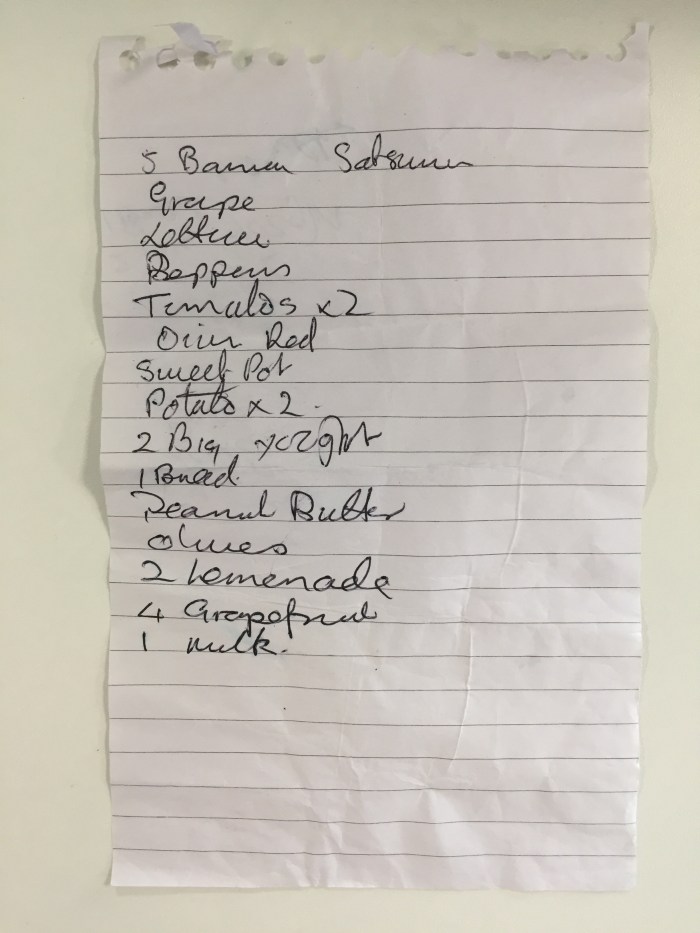 5 Banan Satsuma
Grape
Lettuce
Peppers
Tomatos x2
Onion Red
Sweet Pot
Potato x 2.
2 Big yoghrt
1 Bread
Peanut Butter
Olives
2 Lemenade
4 Grapefruit
1 milk.